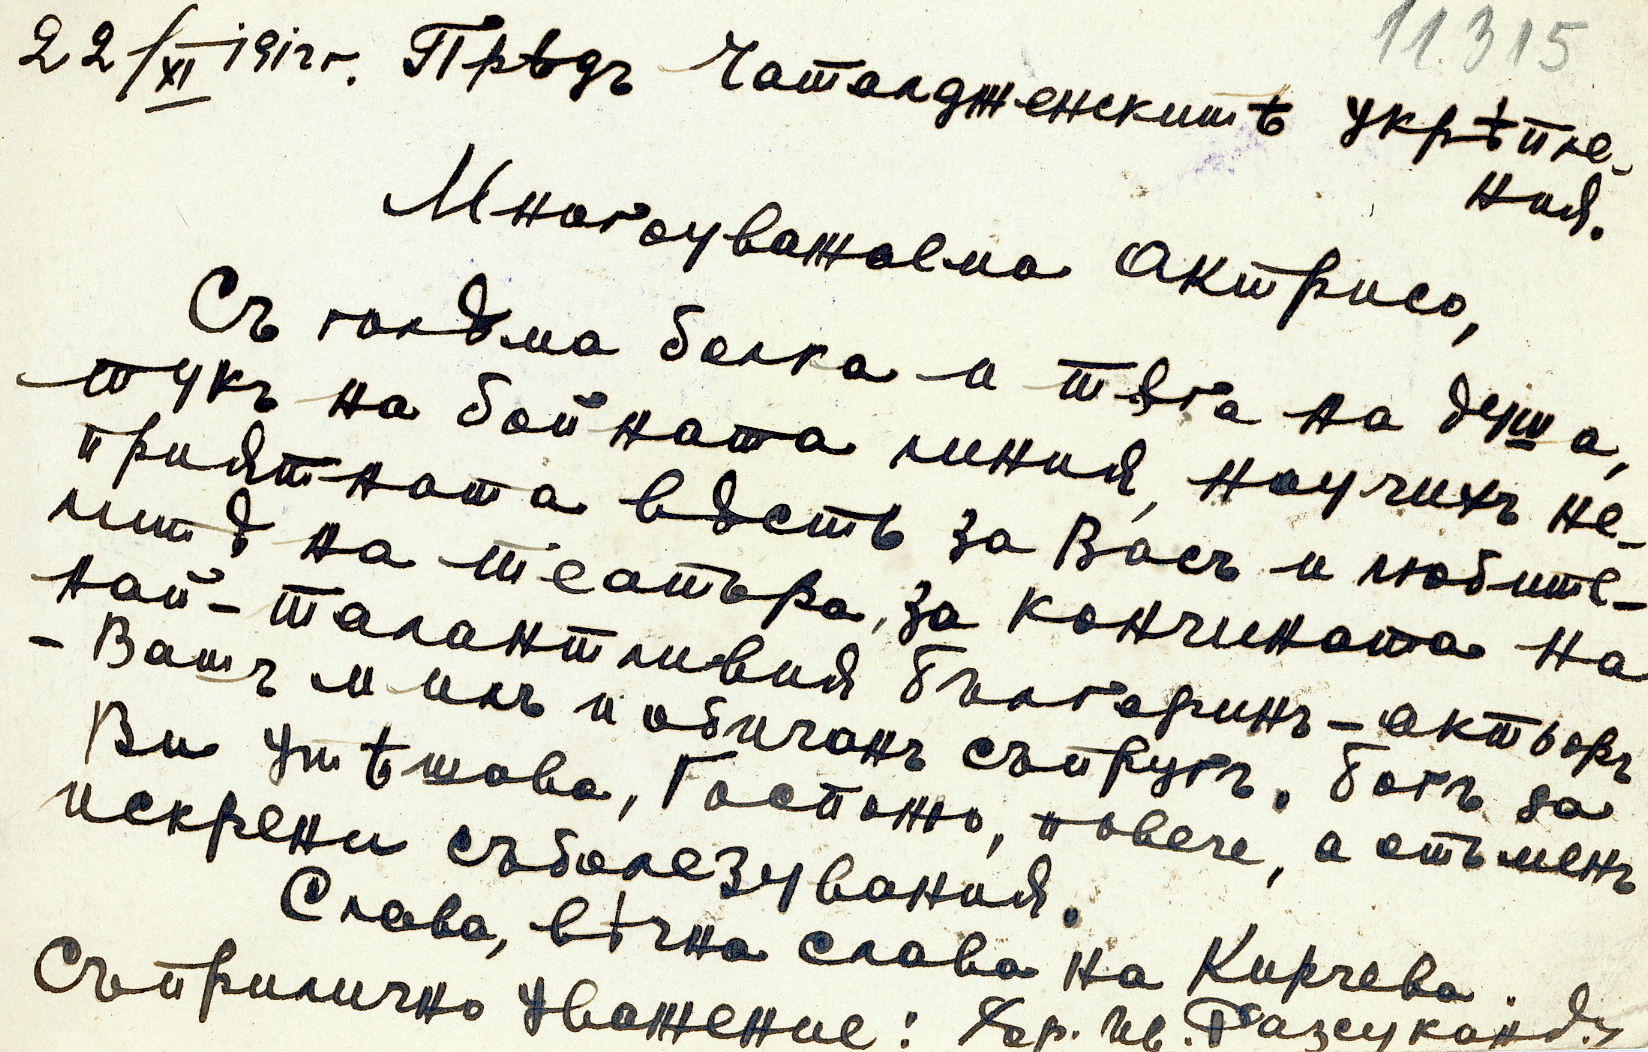 11315
22/XI 1912 г. Прѣдъ Чаталдженскитѣ укрѣпле-
ния.
Многоуважаема Актрисо,
Съ голѣма болка и тѫга на душа,
тукъ на бойната линия, научихъ не-
приятната вѣсть за Васъ и любите-
литѣ на театъра, за кончината на
най-талантливия българинъ-актьоръ
- Вашъ милъ и обичанъ съпругъ. Богъ да
Ви утѣшава, Госпожо, повече, а отъ менъ
искрени съболезувания.
Слава, вѣчна слава на Кирчева.
Съ прилично уважение: Хар. Ив.